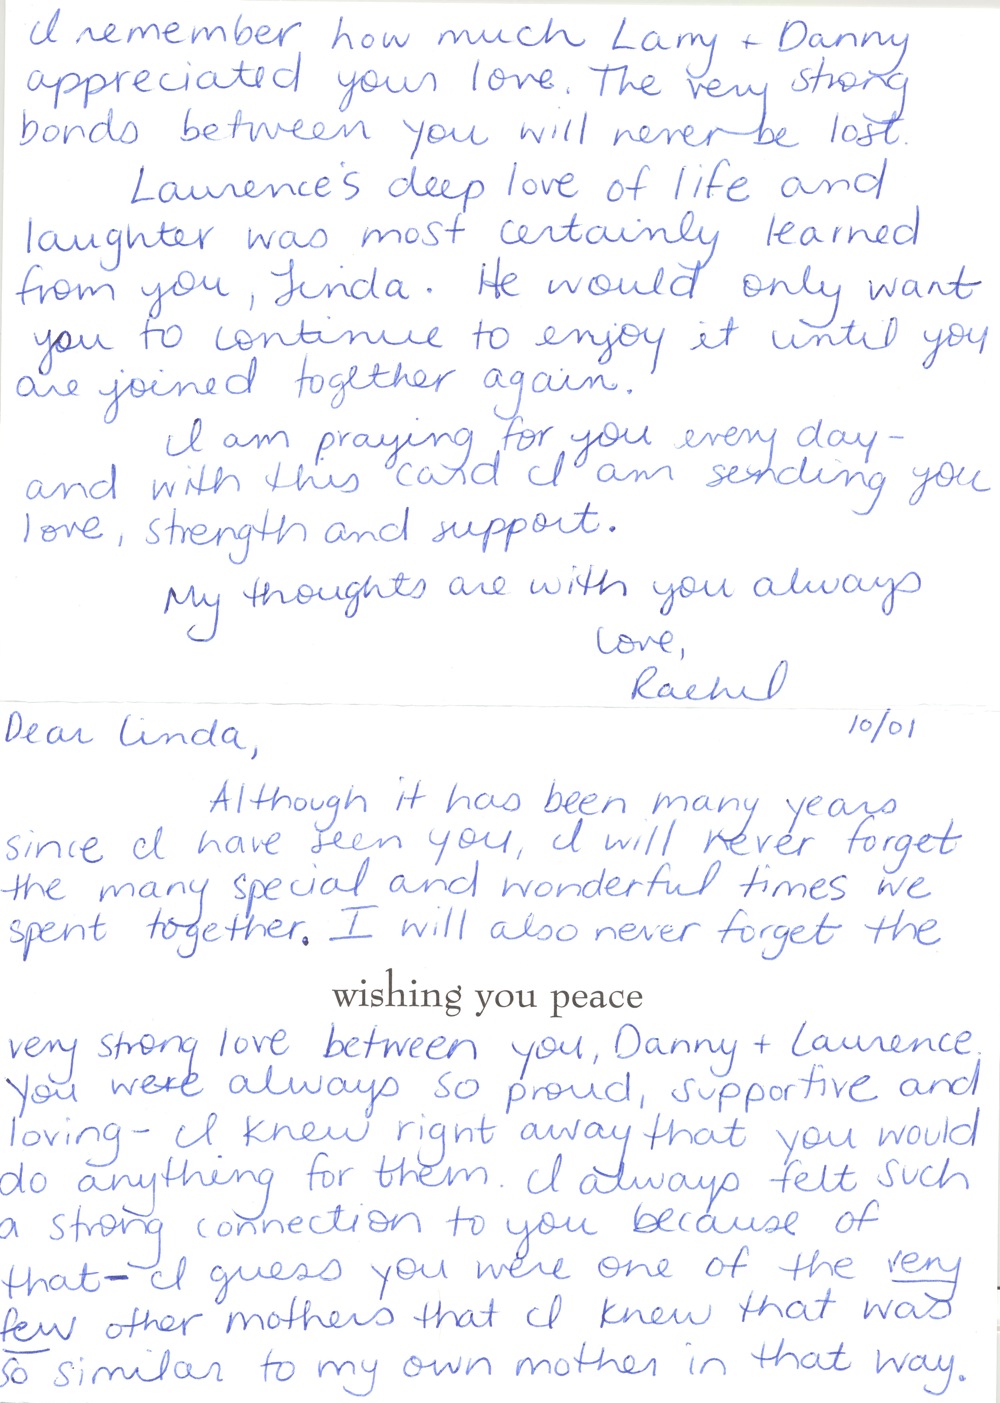 I remember how much Larry + Danny
appreciated your love. The very strong
bonds between you will never be lost.
Laurence's deep love of life and
laughter was most certainly learned
from you, Linda. He would only want
you to continue to enjoy it until you
are joined together again.
I am praying for you every day-
and with this card I am sending you
love, strength and support.
My thoughts are with you always
Love,
Rachel
10/01
Dear Linda,
Although it has been many years
since I have seen you, I will never forget
the many special and wonderful times we
spent together. I will also never forget the
wishing you peace
very strong love between you, Danny + Laurence.
You were always so proud, supportive and
loving- I knew right away that you would
do anything for them. I always felt such
a strong connection to you because of
that- I guess you were one of the very
few other mothers that I knew that was
so similar to my own mother in that way.